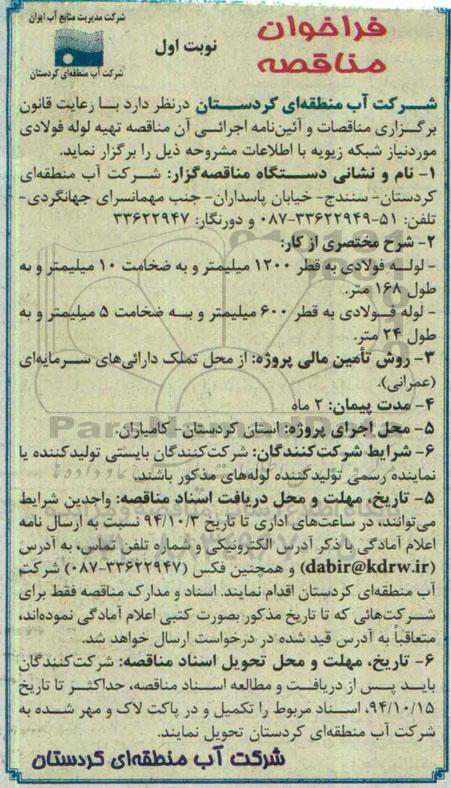 شرکت مدیریت منابع آب ایران
شرکت آب منطقه‌ای کردستان
نوبت اول
فراخوان
مناقصه
شرکت آب منطقه‌ای کردستان درنظر دارد با رعایت قانون
برگزاری مناقصات و آئین‌نامه اجرائی آن مناقصه تهیه لوله فولادی
موردنیاز شبکه زیویه با اطلاعات مشروحه ذیل را برگزار نماید.
۱- نام و نشانی دستگاه مناقصه‌گزار: شرکت آب منطقه‌ای
کردستان- سنندج- خیابان پاسداران- جنب مهمانسرای جهانگردی-
تلفن: ۵۱-۳۳۶۲۲۹۴۹-۰۸۷ و دورنگار: ۳۳۶۲۲۹۴۷
۲- شرح مختصری از کار:
- لوله فولادی به قطر ۱۲۰۰ میلیمتر و به ضخامت ۱۰ میلیمتر و به
طول ۱۶۸ متر.
- لوله فولادی به قطر ۶۰۰ میلیمتر و به ضخامت ۵ میلیمتر و به
طول ۲۴ متر.
۳- روش تأمین مالی پروژه: از محل تملک دارائی‌های سرمایه‌ای
(عمرانی).
۴- مدت پیمان: ۲ ماه
۵- محل اجرای پروژه: استان کردستان- کامیاران.
۶- شرایط شرکت‌کنندگان: شرکت‌کنندگان بایستی تولیدکننده یا
نماینده رسمی تولیدکننده لوله‌های مذکور باشند.
۵- تاریخ، مهلت و محل دریافت اسناد مناقصه: واجدین شرایط
می‌توانند، در ساعت‌های اداری تا تاریخ ۹۴/۱۰/۳ نسبت به ارسال نامه
اعلام آمادگی با ذکر آدرس الکترونیکی و شماره تلفن تماس، به آدرس
(dabir@kdrw.ir) و همچنین فکس (۳۳۶۲۲۹۴۷-۰۸۷) شرکت
آب منطقه‌ای کردستان اقدام نمایند. اسناد و مدارک مناقصه فقط برای
شرکت‌هائی که تا تاریخ مذکور بصورت کتبی اعلام آمادگی نموده‌اند،
متعاقباً به آدرس قید شده در درخواست ارسال خواهد شد.
۶- تاریخ، مهلت و محل تحویل اسناد مناقصه: شرکت‌کنندگان
باید پس از دریافت و مطالعه اسناد مناقصه، حداکثر تا تاریخ
۹۴/۱۰/۱۵، اسناد مربوط را تکمیل و در پاکت لاک و مهر شده به
شرکت آب منطقه‌ای کردستان تحویل نمایند.
شرکت آب منطقه‌ای کردستان